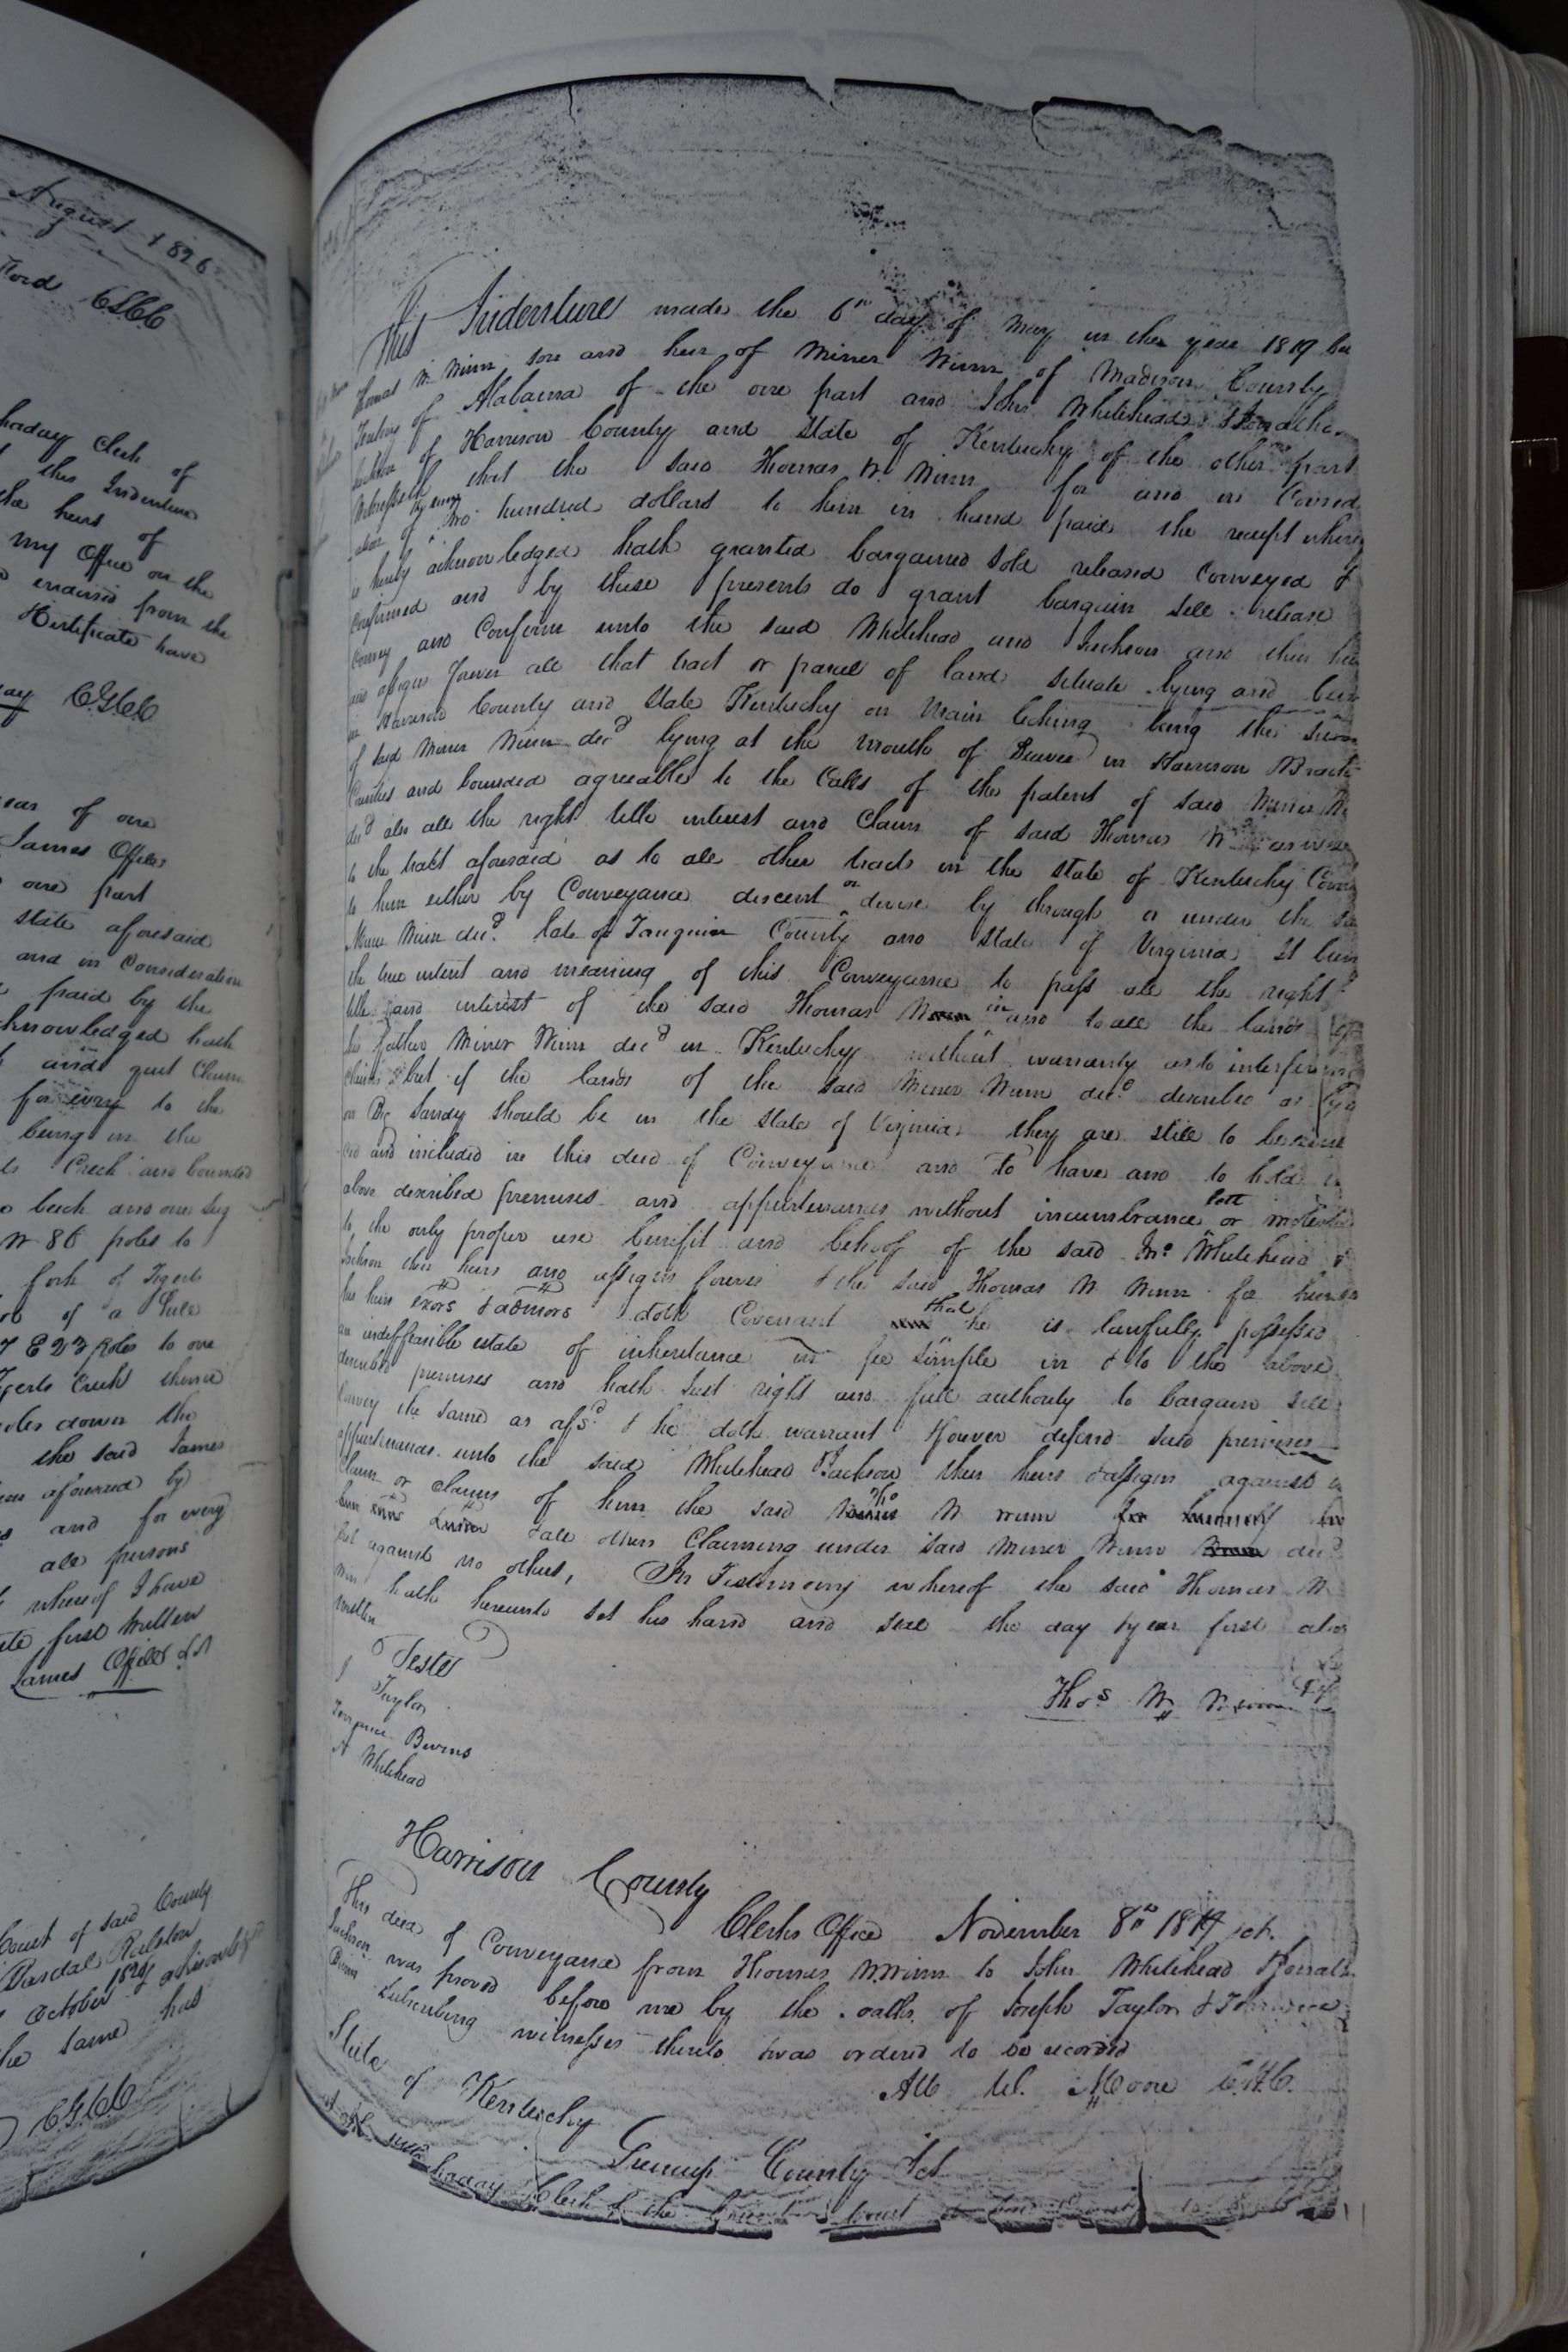 August 1826
ford C G C C
haday Clerk of
this Indenture
the heirs of
my Office on the
endorsed from the
Certificate have
ay C G C C
year of one
James Offiler
one part
state aforesaid
and in Consideration
paid by the
acknowledged hath
quit Claim
for every to the
being in the
Creek and bounded
beech and one Sug
W 86 poles to
fork of Tigerts
of a
E 23 poles to one
Creek thence
poles down the
the said James
aforesaid by
and for every
all persons
whereof I have
date first written
James Offiler LS
Court of said County
Ralston
October 1824
the same has
C G C C
This Indenture made the 6th day of May in the year 1819 be
Thomas W. Winn son and heir of Minor Winn of Madison County
Teritory of Alabama of the one part and John Whitehead &
Jackson of Harrison County and State of Kentucky of the other part
Witnesseth that the said Thomas W. Winn for and in Consid
ation of the sum of two hundred dollars to him in hand paid the receipt where
is hereby acknowledged hath granted bargained sold released Conveyed &
Confirmed and by these presents do grant bargain sell release
Convey and Confirm unto the said Whitehead and Jackson and their hei
and assigns forever all that tract or parcel of land situate lying and bein
in Harrison County and State Kentucky on Main Licking being the
of said Minor Winn decd lying at the mouth of Beaver in Harrison
Counties and bounded agreeable to the Calls of the patent of said Minor W
decd also all the right title interest and Claim of said Thomas W as well
to the tract aforesaid as to all other tracts in the State of Kentucky
to him either by Conveyance descent or devise by through or under the sa
Minor Winn decd late of Fauquier County and State of Virginia It bein
the true intent and meaning of this Conveyance to pass all the right
title and interest of the said Thomas in and to all the lands of
his father Minor Winn decd in Kentucky without warranty as to interfering
claims but if the lands of the said Minor Winn decd described as
on Big Sandy should be in the State of Virginia they are still to be
and included in this deed of Conveyance and To have and to hold
above described premises and appurtenances without incumbrance lett or
to the only proper use benefit and behoof of the said Jno Whitehead &
Jackson their heirs and assigns forever & the said Thomas W Winn for
his heirs exors & admors doth Covenant that he is lawfully possessed
an indeffeasible estate of inheritance in fee Simple in & to the above
described premises and hath Just right and full authority to bargain sell
Convey the same as afsd & he doth warrant & forever defend said premises
appurtenances unto the said Whitehead & Jackson their heirs & assigns against
Claim or claims of him the said Tho W Winn for himself
him & all others Claiming under said Minor Winn decd
but against no others, In Testimony whereof the said Thomas W
Winn hath hereunto set his hand and seal the day & year first abo
written
Teste
J Taylor
Terrence Burns
A Whitehead
Thos W Winn
Harrison County
Clerks Office November 8th 1819 sct.
This deed of Conveyance from Thomas W. Winn to John Whitehead &
Jackson was proved before me by the oaths of Joseph Taylor &
Burns Subscribing witnesses thereto & was ordered to be recorded
Att W. Moore C.H.C.
State of Kentucky
Greenup County Sct
Clerk of the Court